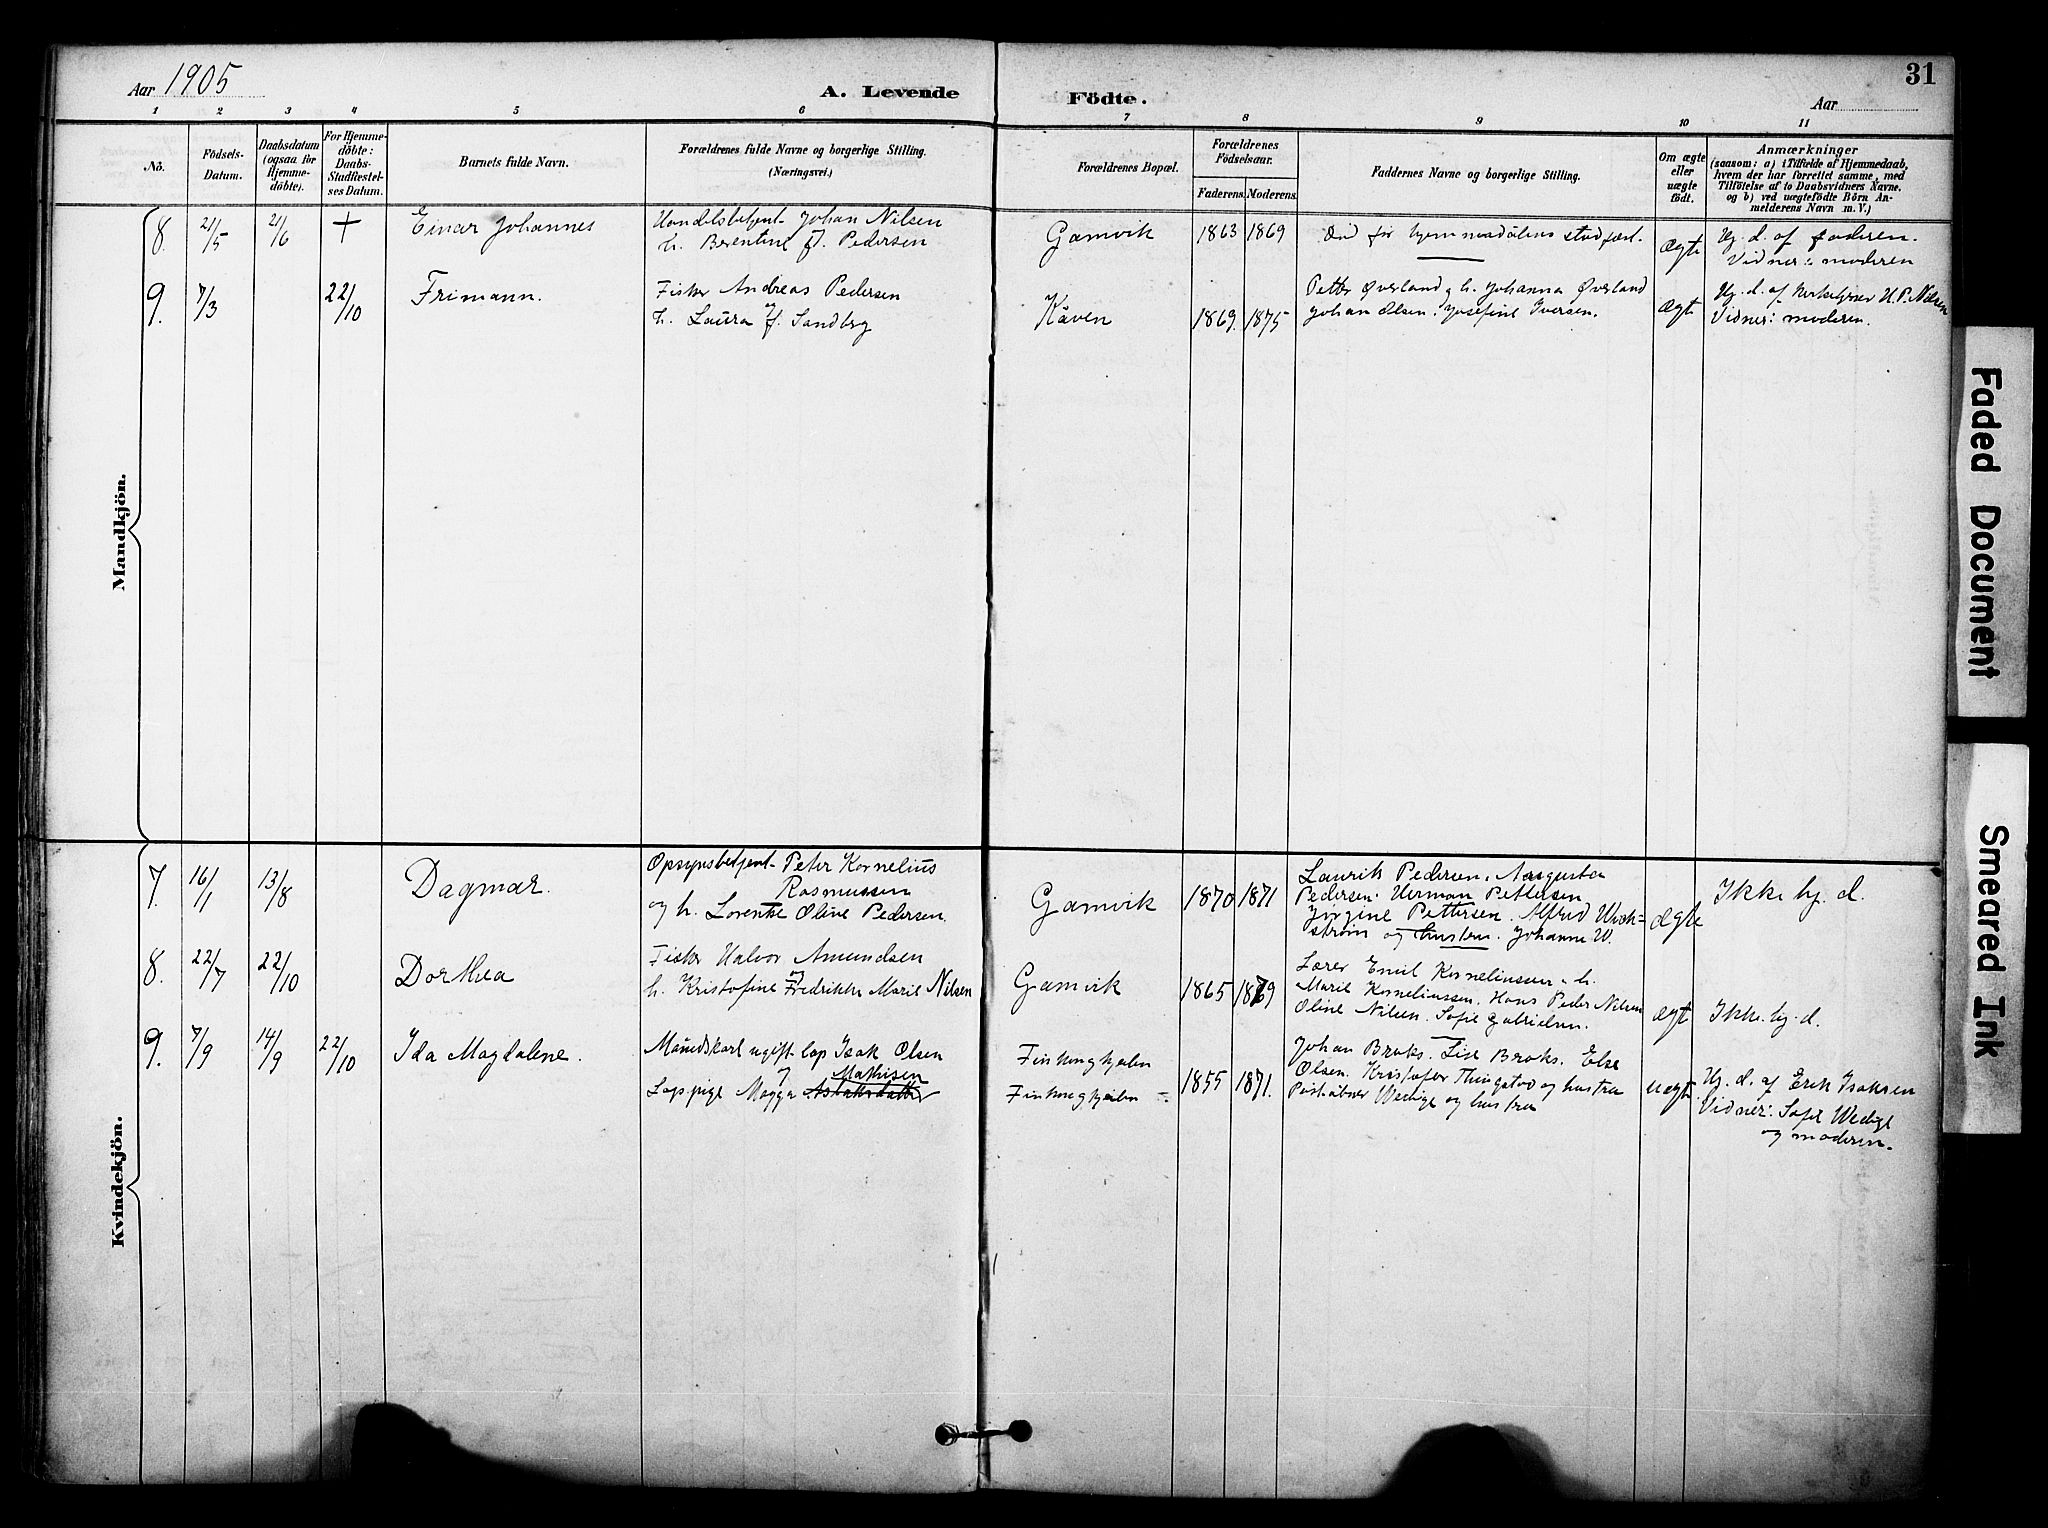 Aar 1905
A. Levende
Födte.
Aar
31
1 2 3 4 5 6 7 8 9 10 11
Nö.
Födsels-
Datum.
Daabsdatum
(ogsaa for
Hjemme-
döbte).
For Hjemme-
döbte:
Daabs-
Stadfæstel-
ses Datum.
Barnets fulde Navn.
Forældrenes fulde Navne og borgerlige Stilling.
(Næringsvei.)
Forældrenes Bopæl.
Forældrenes
Födselsaar.
Faderens. Moderens.
Faddernes Navne og borgerlige Stilling.
Om ægte
eller
uægte
födt.
Anmærkninger
(saasom: a) i Tilfælde af Hjemmedaab,
hvem der har forrettet samme, med
Tilföielse af to Daabsvidners Navne.
og b) ved uægtefödte Börn An-
melderens Navn m. V.)
Mandkjön.
8. 21/5 21/6 + Einar Johannes
Handelsbetjent Johan Nilsen
h. Berentine f. Pedersen
Gamvik 1863 1869
Død før hjemmedåbens stadfæst.
ægte
Hj. d. af faderen.
Vidner: moderen
9. 7/3 22/10 Frimann.
Fisker Andreas Pedersen
og
h. Laura f. Sandberg
Kåven 1869. 1875
Petter Øverland & h. Johanna Øverland
Johan Olsen. Josefine Iversen.
ægte
Hj. d. af Kirketjener H. P. Nilsen
Vidner: moderen.
Kvindekjön.
7. 16/1 13/8 Dagmar.
Opsynsbetjent Peter Kornelius
Rasmussen
og h. Lorentse Oline Pedersen.
Gamvik 1870 1871
Laurik Pedersen. Augusta
Pedersen. Herman Pettersen
Jørgine Pettersen. Alfred
strøm og hustru. Johanne W.
ægte
Ikke hj. d.
8. 22/7 22/10 Dorthea
Fisker Halvor Amundsen
og
h. Kristofine Fredrikke Marie Nilsen
Gamvik 1865 1869
Lærer Emil Korneliussen & h.
Marie Korneliussen. Hans Peder Nilsen
Oline Nilsen. Sofie Gabrielsen.
ægte
Ikke hj. d.
9. 7/9 14/9 22/10 Ida Magdalene.
Mandskarl ugift lap Isak Olsen
og Mathisen
Lappige Magga Aslaksdatter
Finkongkjeilen
Finkongkjeilen
1855 1871.
Johan Braks. Lise Braks. Else
Olsen. Kristofer Thingstvo og hustru
Poståbner Wedige og hustru
uægte
Hj. d. af Erik Isaksen
Vidner: Sofie Wedige
og moderen.
Faded Document
Smeared Ink